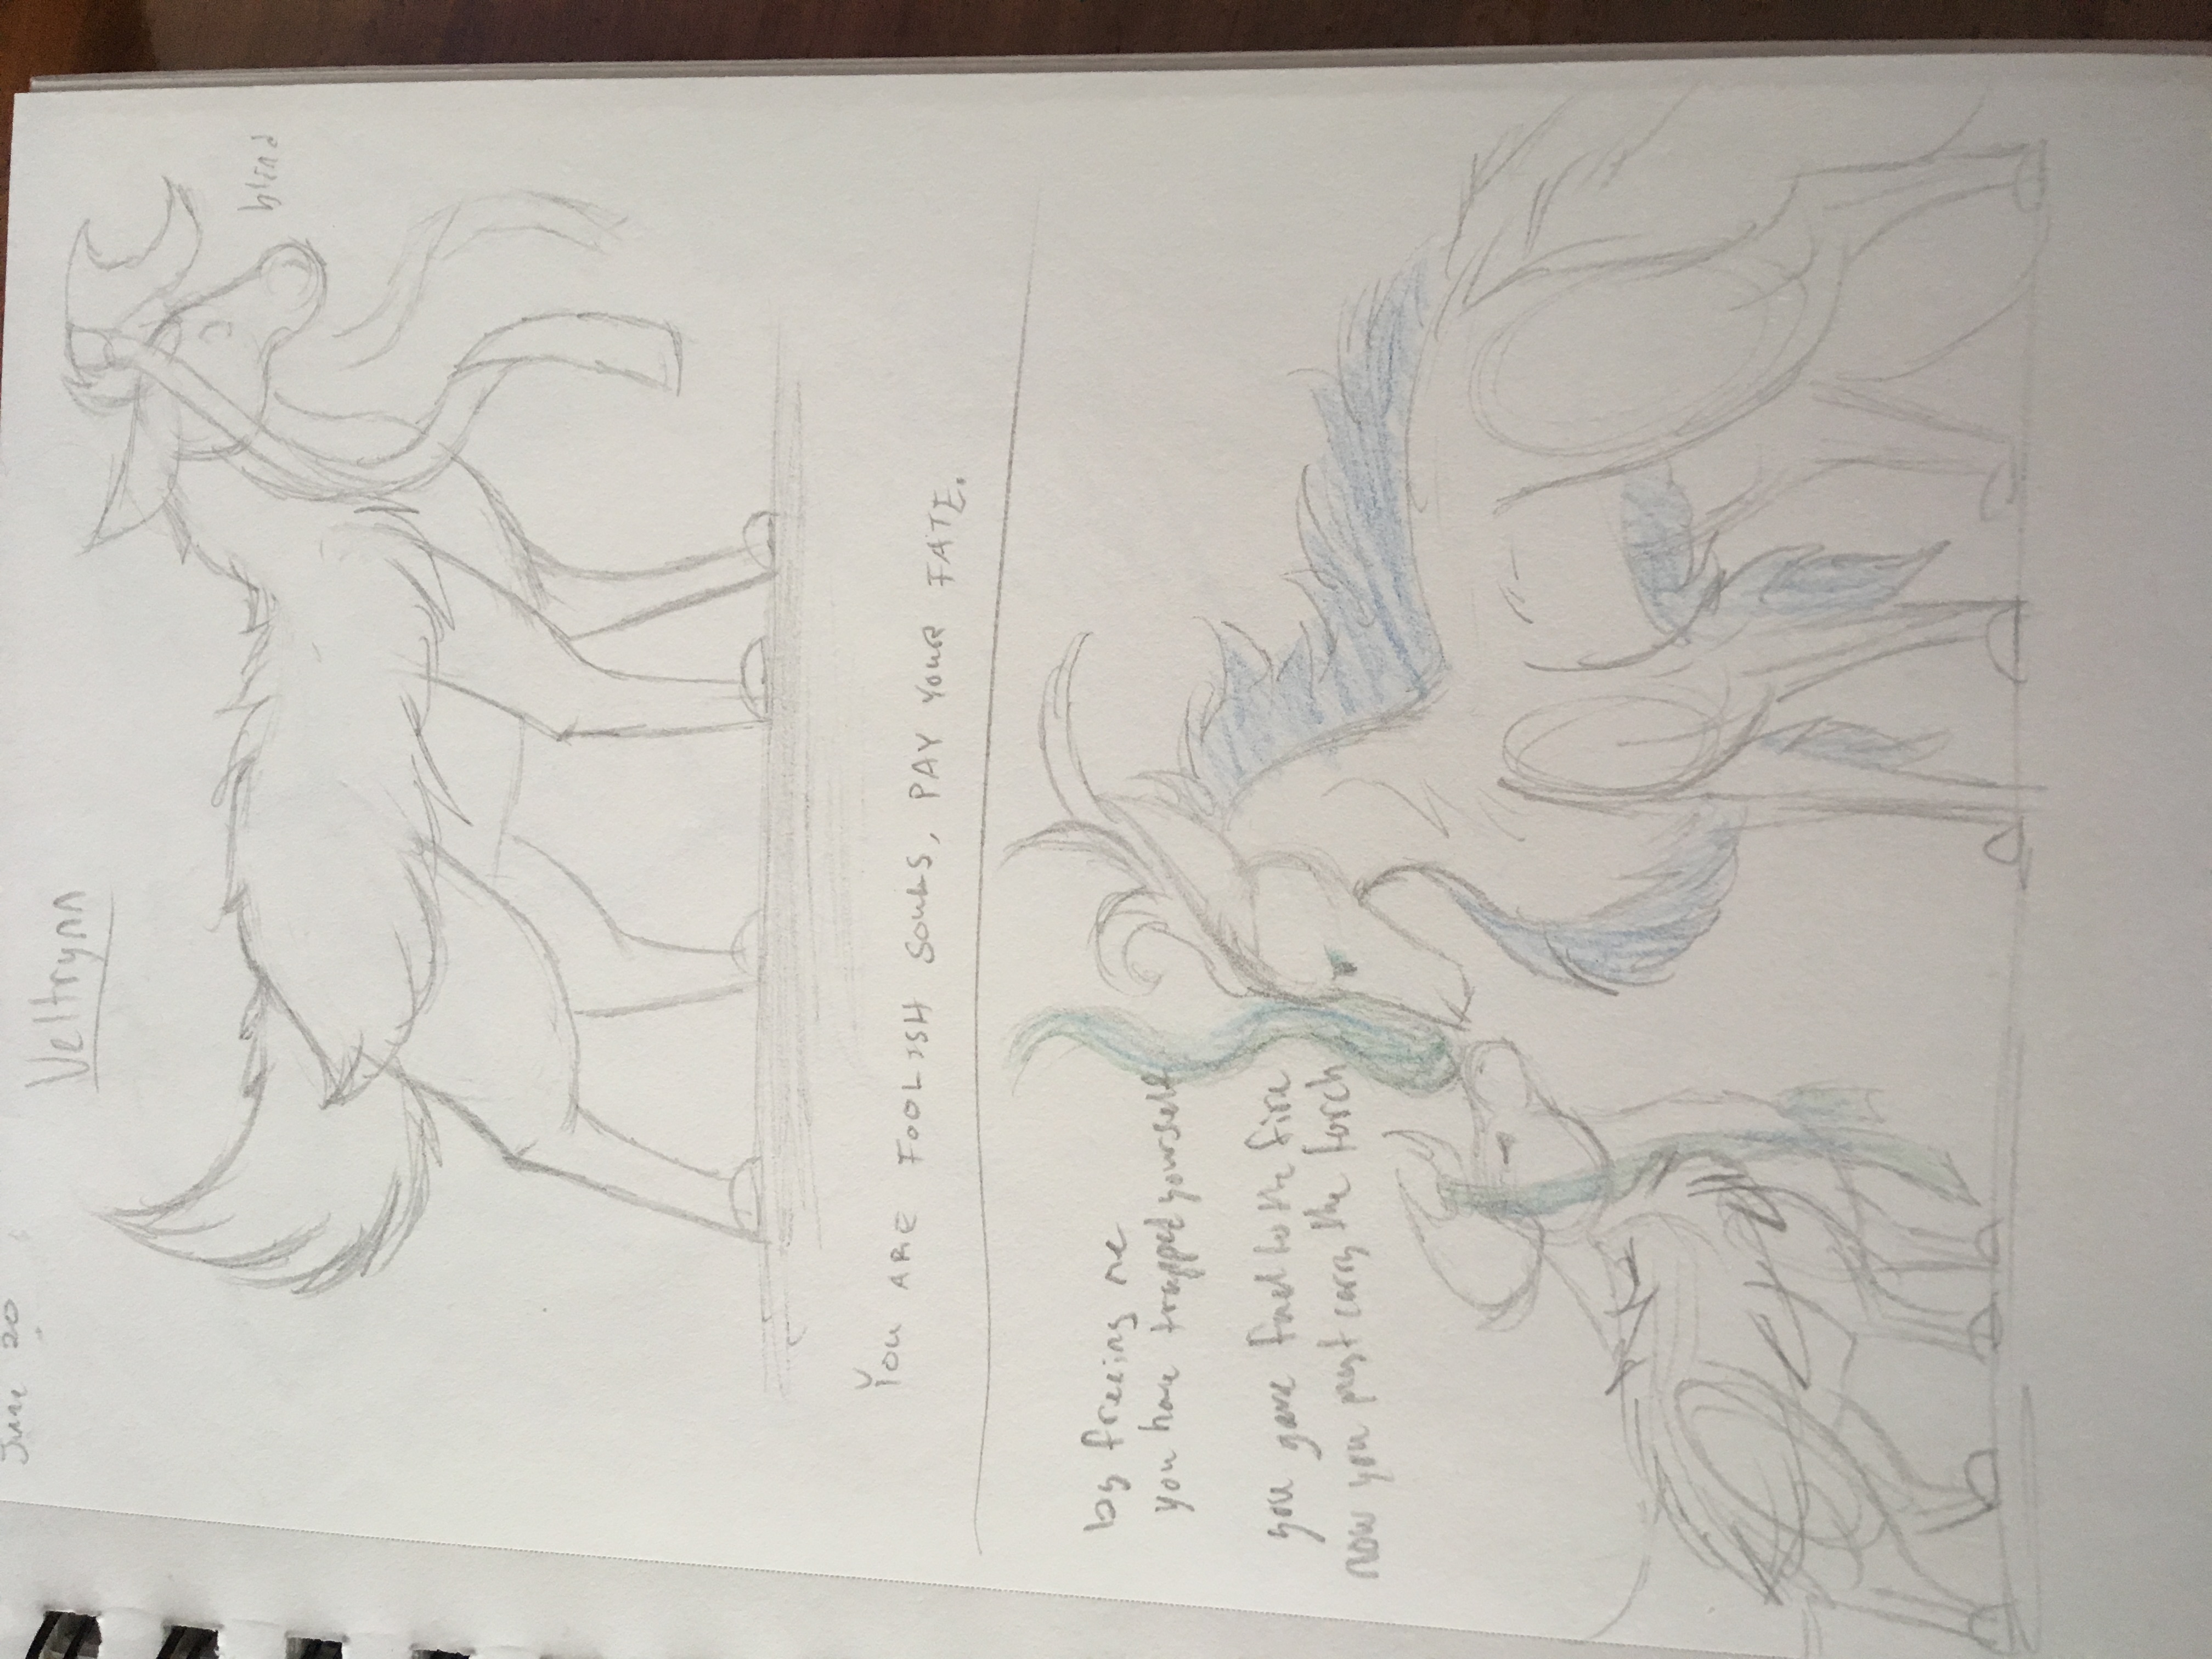 June 20
Veltrynn
blind
YOU ARE FOOLISH SOULS, PAY YOUR FATE.
by freeing me
you have trapped yourself
you gave fuel to the fire
now you must carry the torch